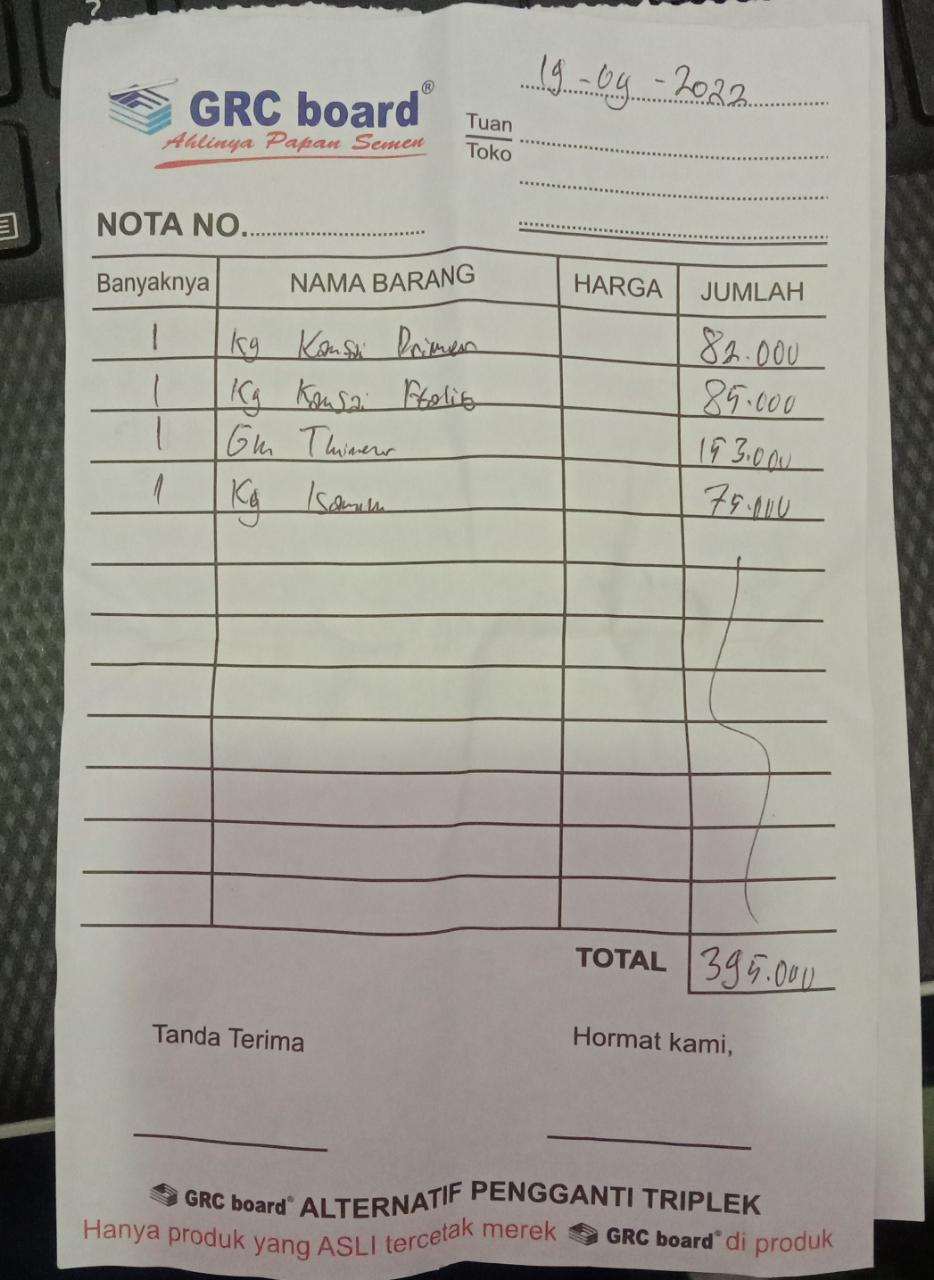 19-09-2022
GRC board®
Ahlinya Papan Semen
Tuan
Toko
NOTA NO.
Banyaknya NAMA BARANG HARGA JUMLAH
1 Kg Kansai 82.000
1 Kg Kansai 85.000
1 Thinner 153.000
1 Kg 75.000
TOTAL 395.000
Tanda Terima Hormat kami,
GRC board® ALTERNATIF PENGGANTI TRIPLEK
Hanya produk yang ASLI tercetak merek GRC board® di produk